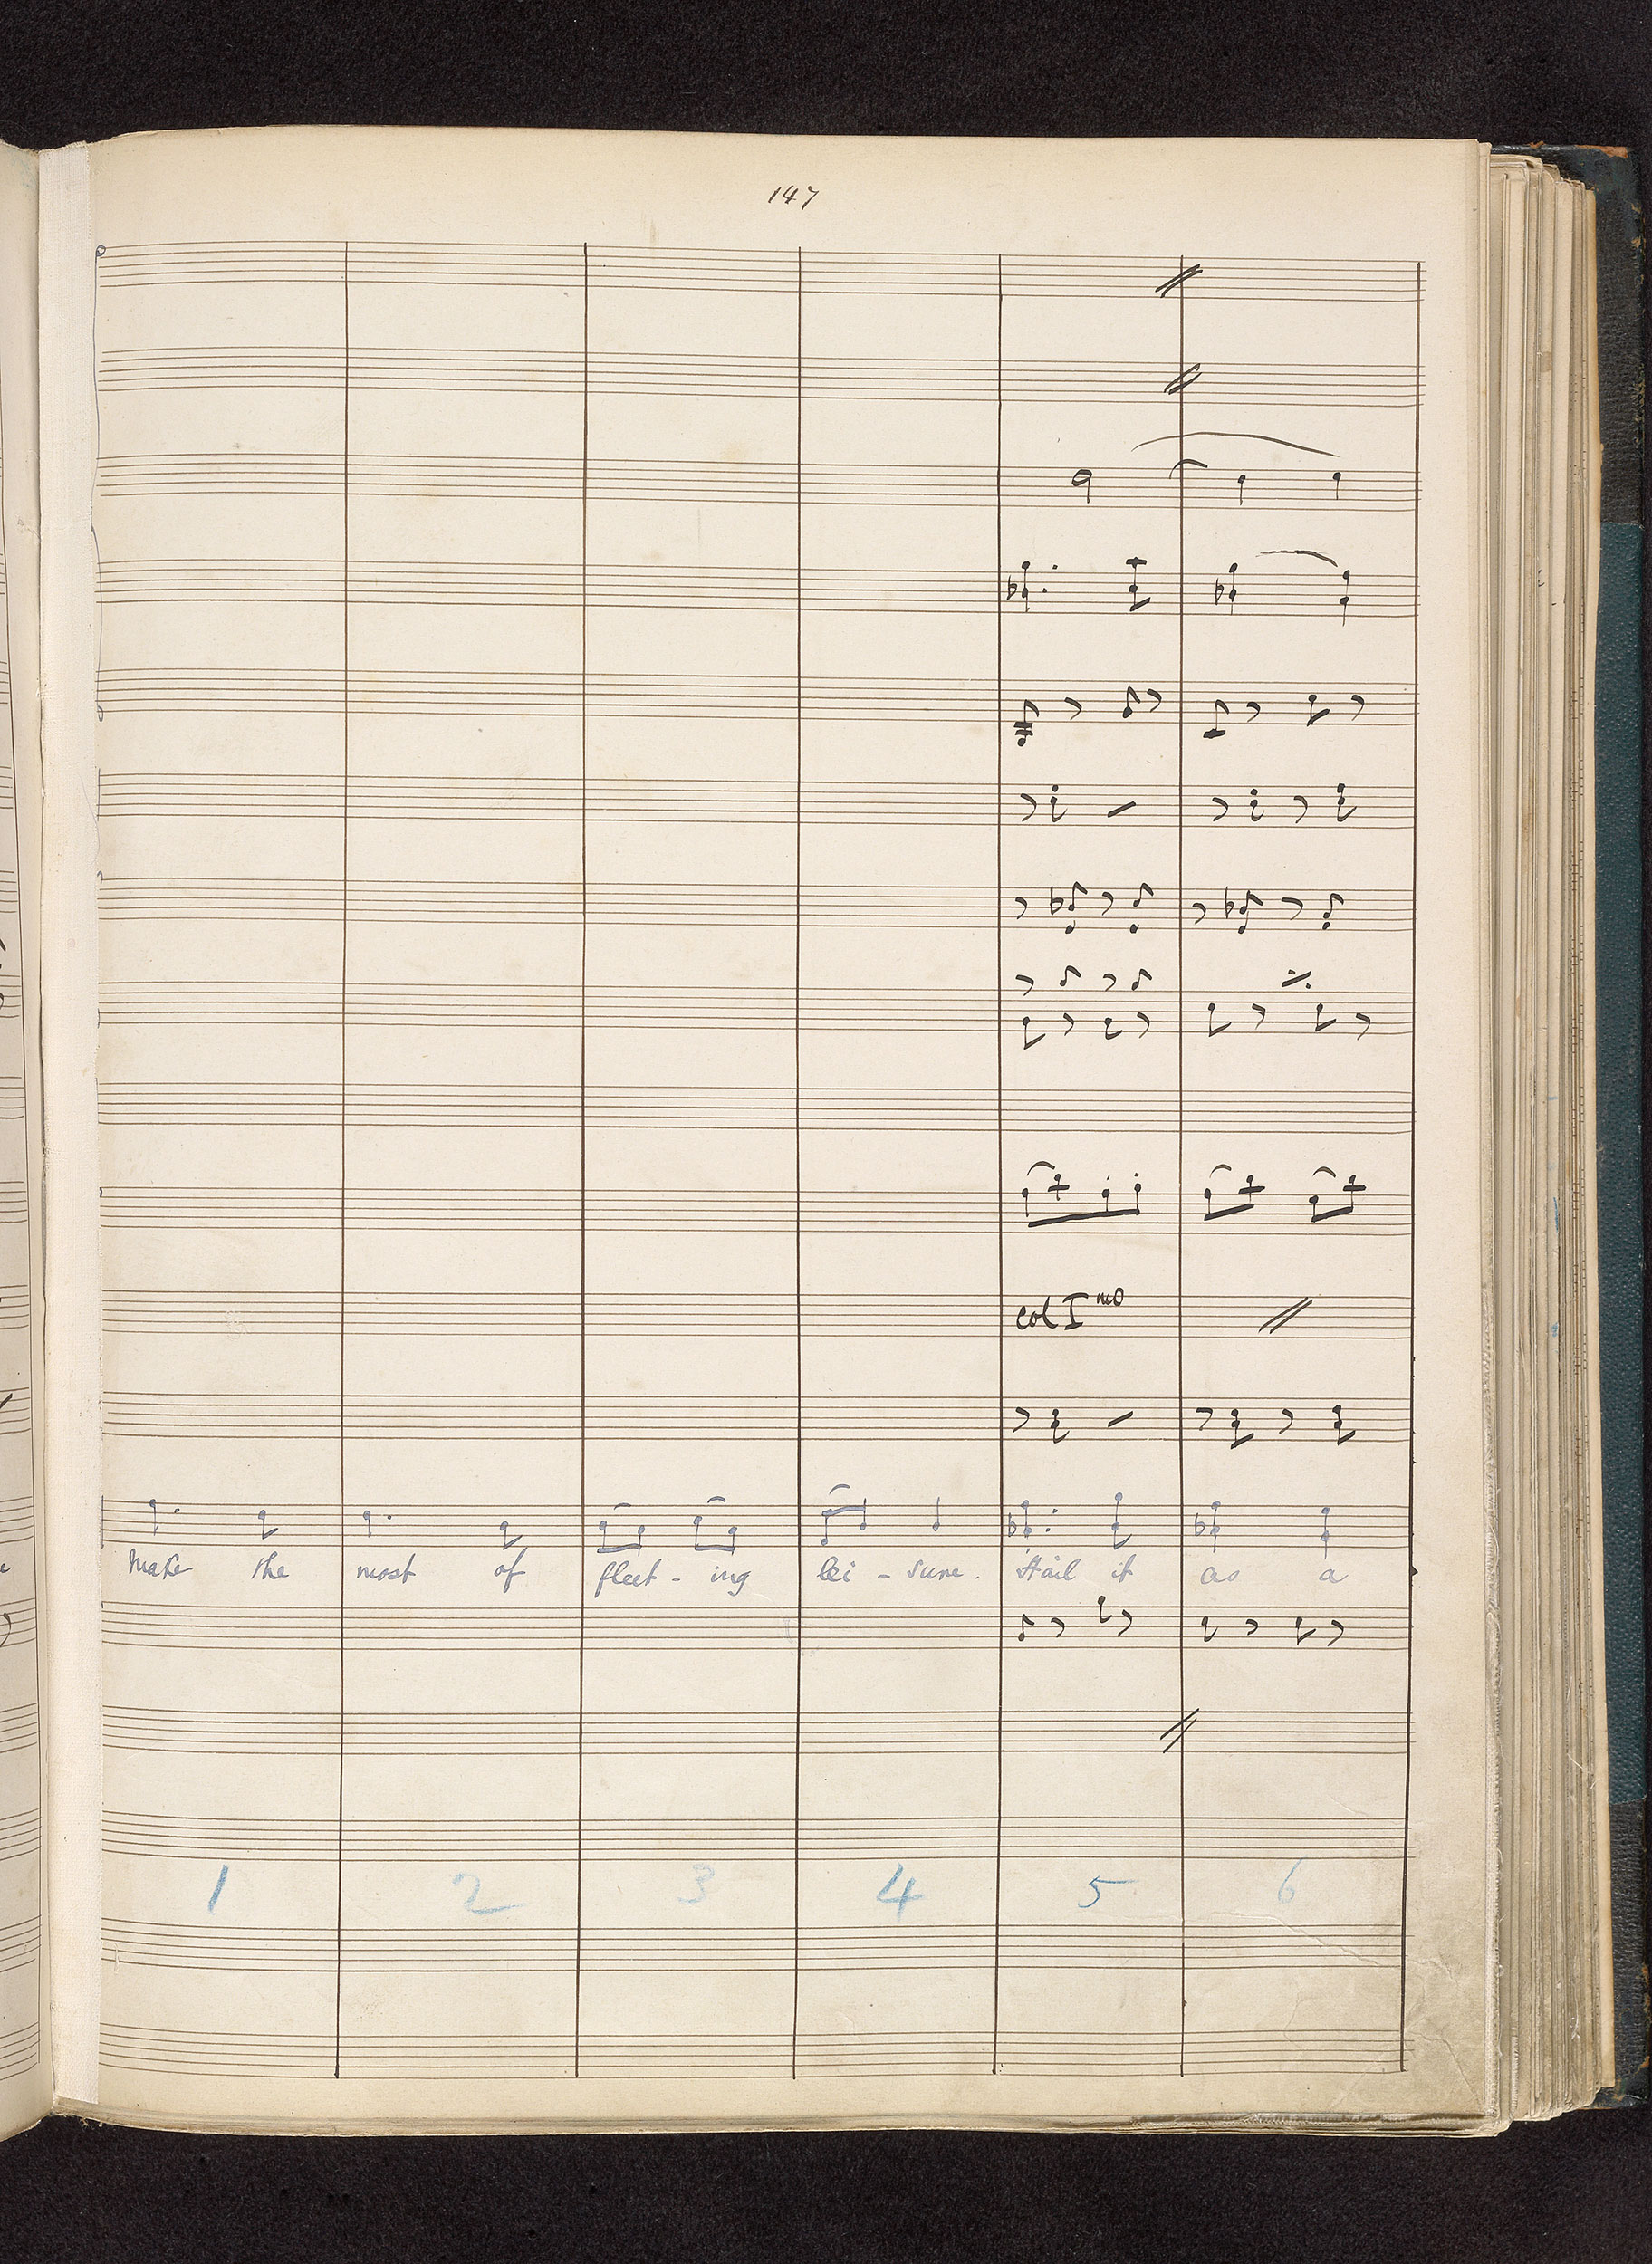 147
col I mo
Make the most of fleet - ing lei - sure. Hail it as a
1 2 3 4 5 6